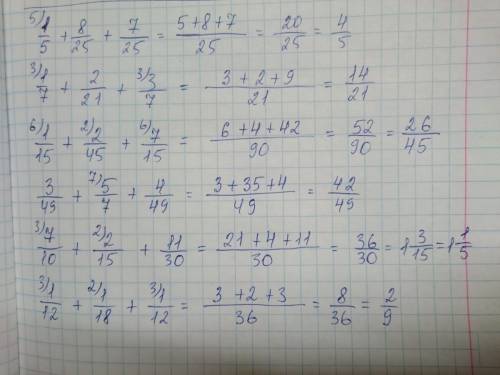 ⁵⁾1/5 + 8/25 + 7/25 = (5+8+7)/25 = 20/25 = 4/5
³⁾1/7 + 2/21 + ³⁾3/7 = (3+2+9)/21 = 14/21
⁶⁾1/15 + ²⁾2/45 + ⁶⁾7/15 = (6+4+42)/90 = 52/90 = 26/45
3/49 + ⁷⁾5/7 + 4/49 = (3+35+4)/49 = 42/49
³⁾7/10 + ²⁾2/15 + 11/30 = (21+4+11)/30 = 36/30 = 1 3/15 = 1 1/5
³⁾1/12 + ²⁾1/18 + ³⁾1/12 = (3+2+3)/36 = 8/36 = 2/9